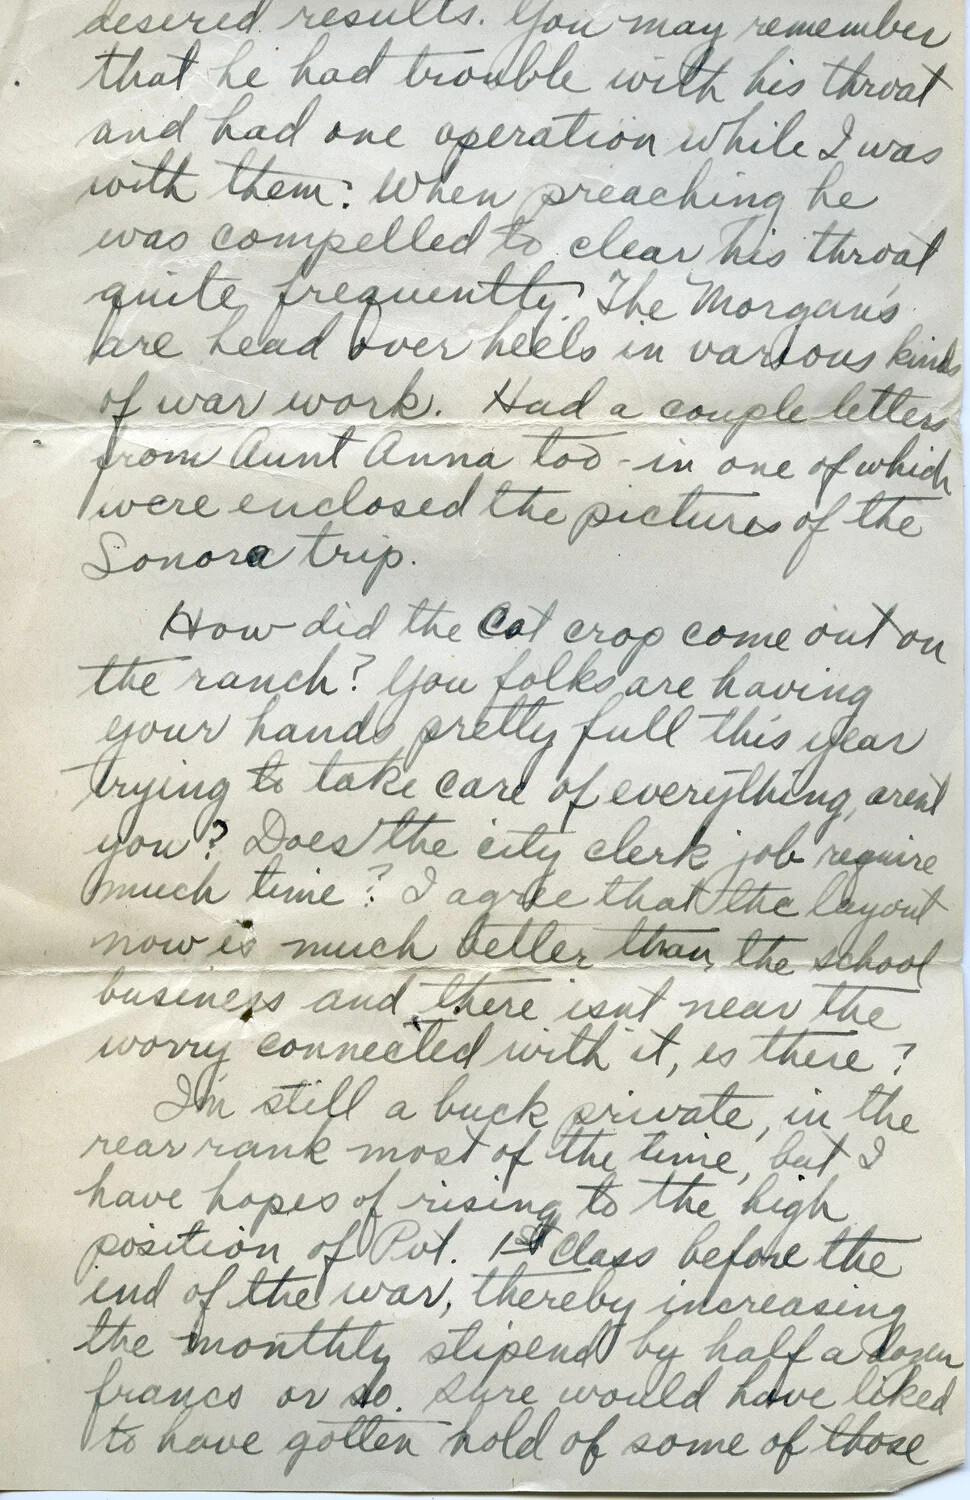 desered results. You may remember
that he had trouble with his throat
and had one operation while I was
with them. When preaching he
was compelled to clear his throat
quite frequently. The Morgan's
are head over heels in various kinds
of war work. Had a couple letters
from Aunt Anna too - in one of which
were enclosed the pictures of the
Sonora trip.
How did the Cot crop come out on
the ranch? You folks are having
your hands pretty full this year
trying to take care of everything, arent
you? Does the city clerk job require
much time? I agree that the layout
now is much better than the school
business and there isnt near the
worry connected with it, is there?
I'm still a buck private, in the
rear rank most of the time, but I
have hopes of rising to the high
position of Pvt. 1st Class before the
end of the war, thereby increasing
the monthly stipend by half a dozen
francs or so. Sure would have liked
to have gotten hold of some of those